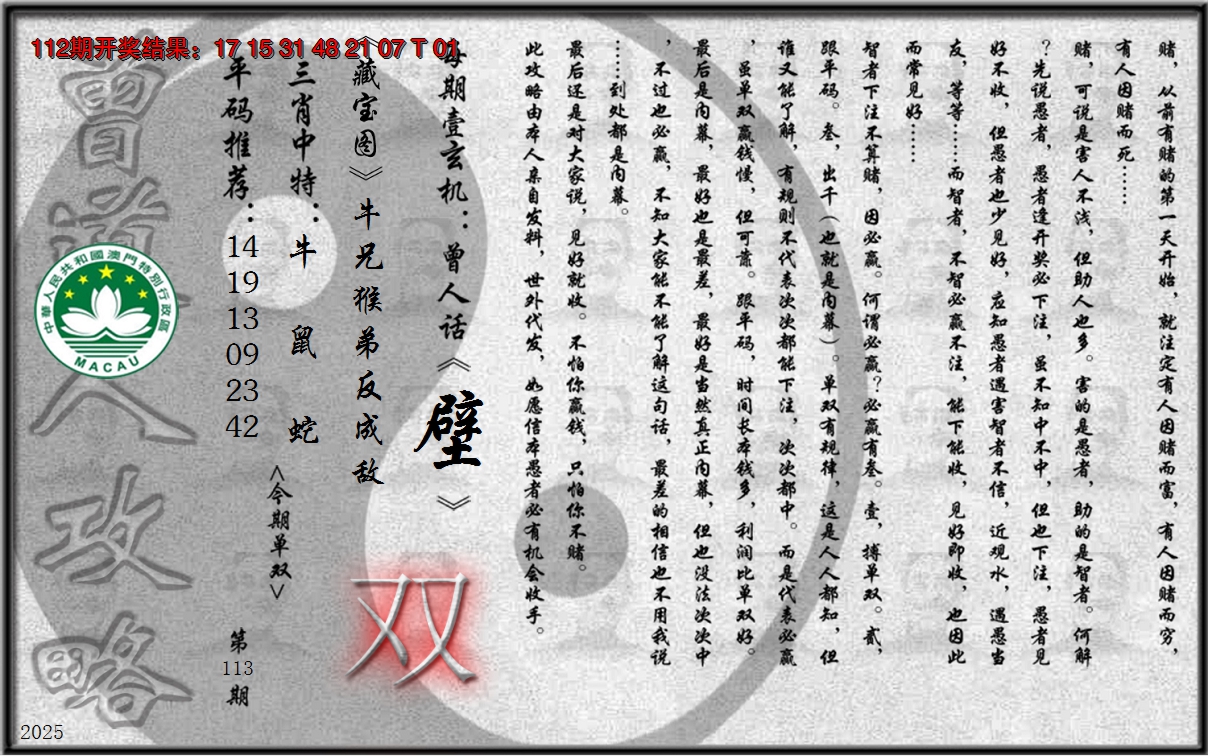 112期开奖结果：17 15 31 48 21 07 T 01
赌，从前有赌的第一天开始，就注定有人因赌而富，有人因赌而穷，
有人因赌而死……
赌，可说是害人不浅，但助人也多。害的是愚者，助的是智者。何解
？先说愚者，愚者逢开奖必下注，虽不知中不中，但也下注，愚者见
好不收，但愚者也少见好，应知愚者遇害智者不信，近观水，遇愚当
友，等等……而智者，不智必赢不注，能下能收，见好即收，也因此
而常见好……
智者下注不算赌，因必赢。何谓必赢？必赢有叁。壹，搏单双。贰，
跟平码。叁，出千（也就是内幕）。单双有规律，这是人人都知，但
谁又能了解，有规则不代表次次都能下注，次次都中。而是代表必赢
，虽单双赢钱慢，但可靠。跟平码，时间长本钱多，利润比单双好。
最后是内幕，最好也是最差，最好是当然真正内幕，但也没法次次中
，不过也必赢，不知大家能不能了解这句话，最差的相信也不用我说
……到处都是内幕。
最后还是对大家说，见好就收。不怕你赢钱，只怕你不赌。
此攻略由本人亲自发料，世外代发，如愿信本愚者必有机会收手。
每期壹玄机：曾人话《壁》
《藏宝图》牛兄猴弟反成敌
双
三肖中特：牛 鼠 蛇
<今期单双>
平码推荐：
14
19
13
09
23
42
第
113
期
曾道人攻略
中華人民共和國澳門特別行政區
MACAU
2025